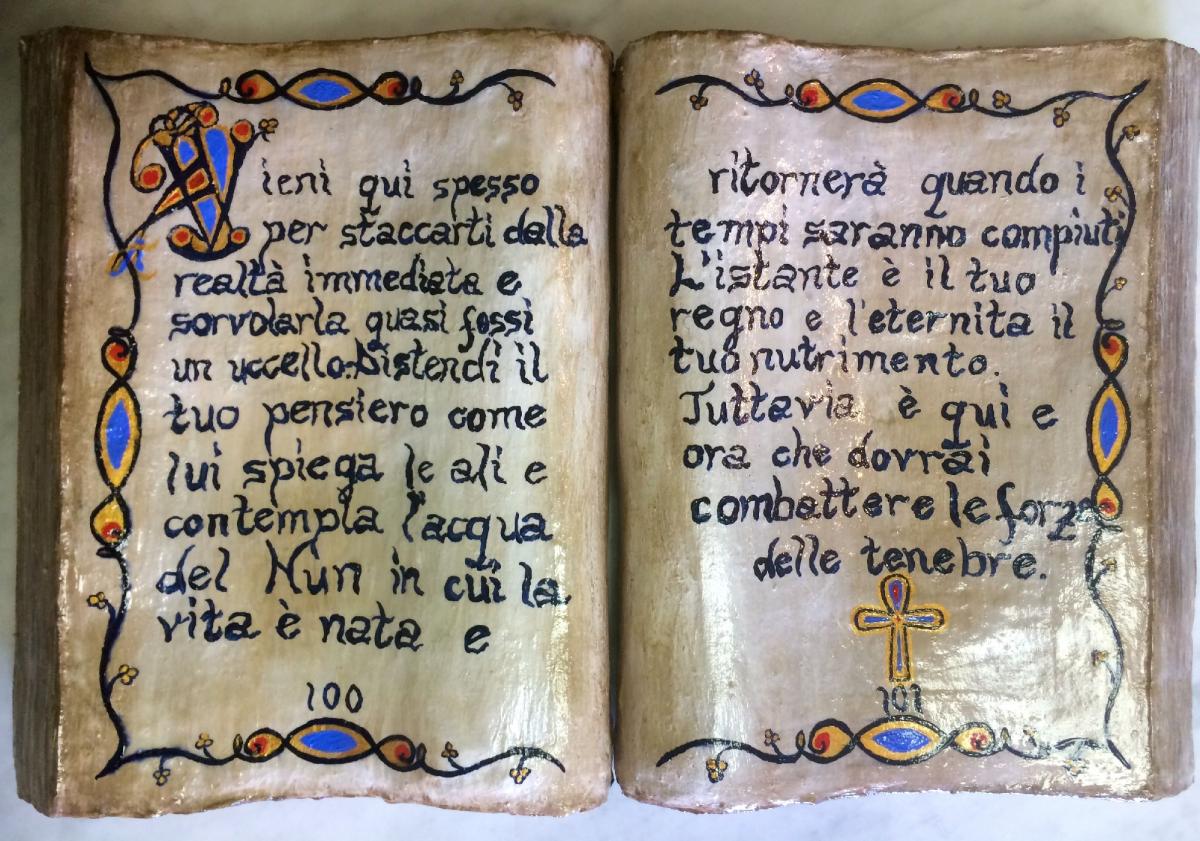 Vieni qui spesso
per staccarti dalla
realtà immediata e
sorvolarla quasi fossi
un uccello. Distendi il
tuo pensiero come
lui spiega le ali e
contempla l'acqua
del Nun in cui la
vita è nata e
100
ritornerà quando i
tempi saranno compiuti
L'istante è il tuo
regno e l'eternita il
tuo nutrimento.
Tuttavia è qui e
ora che dovrai
combattere le forze
delle tenebre.
101